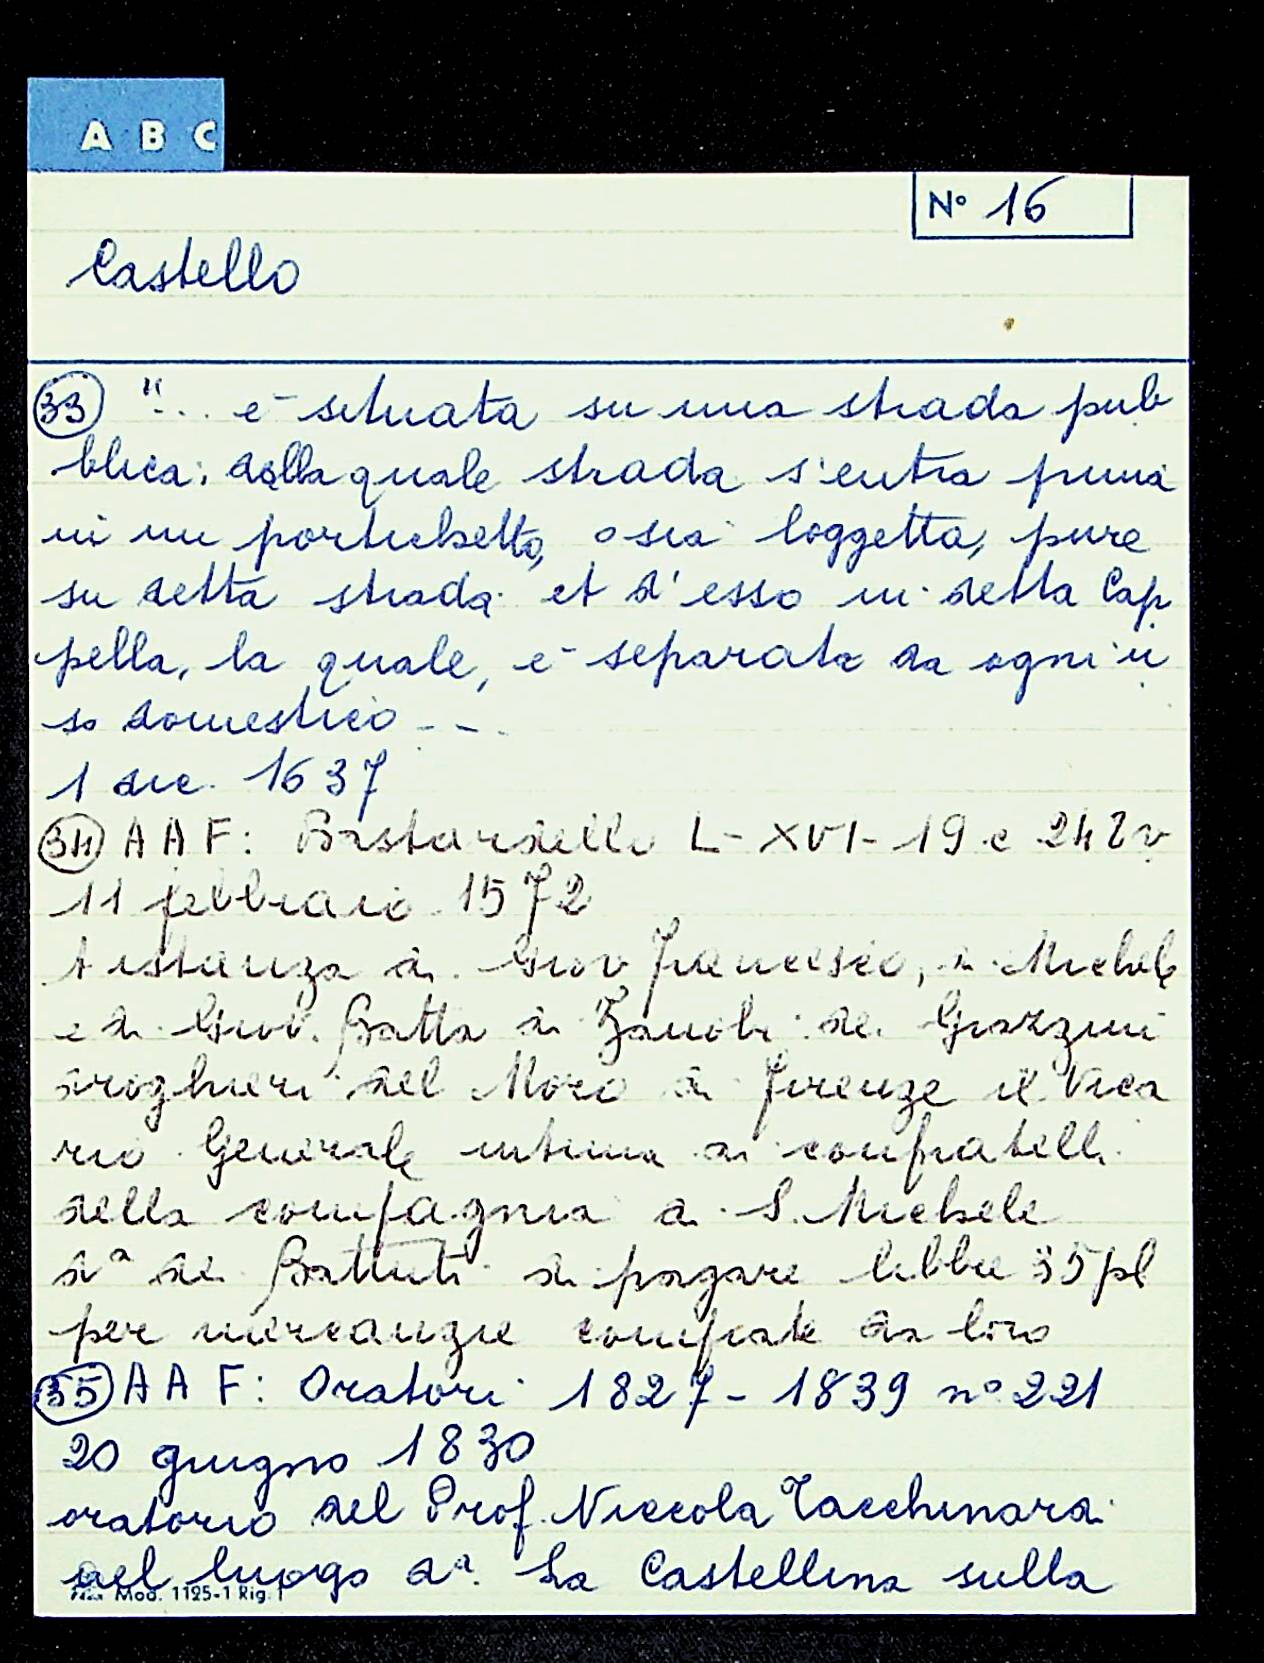 A B C
N° 16
Castello
33 "... è situata su una strada pub
blica; dalla quale strada s'entra prima
in un portichetto, o sia loggetta, pure
su detta strada et d'esso in detta Cap
pella, la quale, è separata da ogni u
so domestico - - .
1 dic. 1637
34 A A F: Bastardello L-XVI-19 c 242v
11 febbraio 1572
A istanza di Giov Francesco, di Michele
e di Giov. Batta di Zanobi de Grazzini
drogheri del Moro di Firenze il Vica
rio Generale intima ai confratelli
della compagnia di S. Michele
da dei Battuti di pagare libbre 35 pl
per mercanzie comprate da loro
35 A A F: Oratori 1827-1839 n° 221
20 giugno 1830
oratorio del Prof. Niccola Tacchinardi
nel luogo da. La Castellina sulla
Mod. 1125-1 Rig. 1